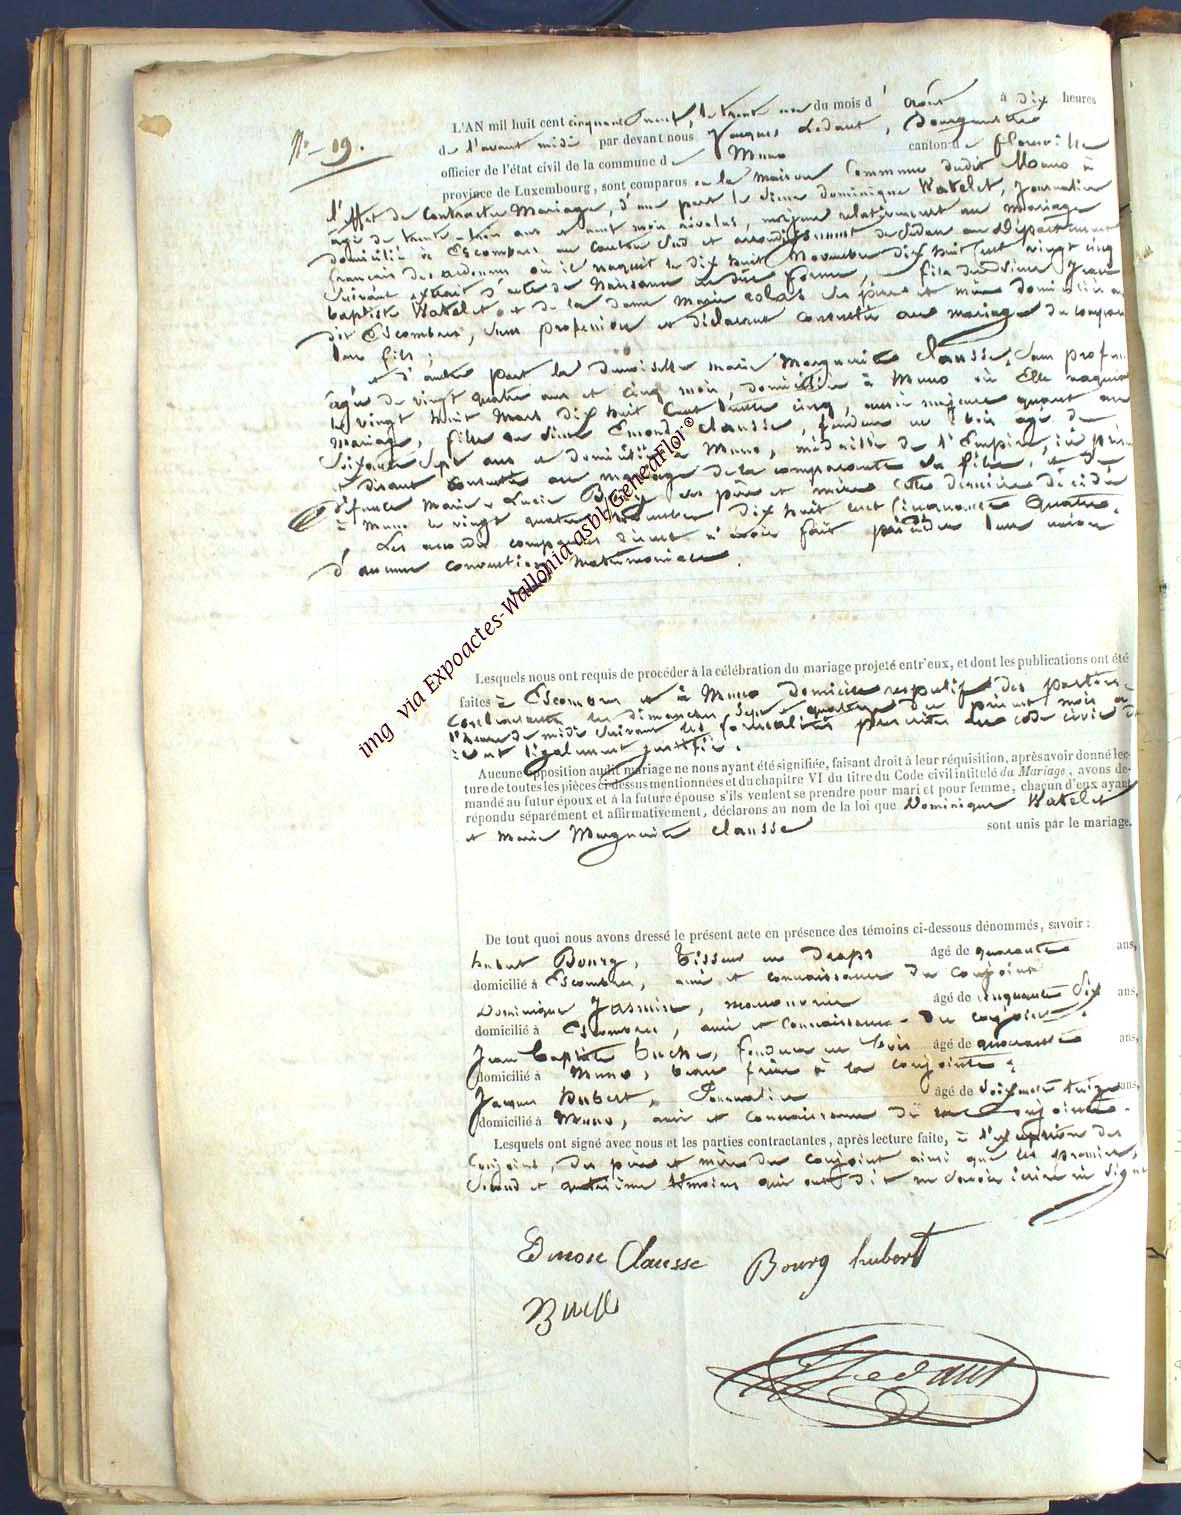 N.° 19.
L'AN mil huit cent cinquante neuf, le trente un du mois d' août à dix heures
de l'avant midi par devant nous Jacques Ledant, Bourgmestre
officier de l'état civil de la commune de Muno canton de florenville
province de Luxembourg, sont comparus en la maison Commune dudit Muno à
l'effet de Contracter Mariage, d'une part le sieur dominique Watelet, Journalier
agé de trente-trois ans et neuf mois révolus, majeur relativement au mariage
domicilié à Escombres au Canton Sud et arrondissement de Sédan au Département
français des ardennes où il naquit le dix huit Novembre dix huit Cent vingt cinq
suivant extrait d'acte de Naissance en due forme, fils du sieur Jean
baptiste Watelet et de la dame Marie Colas ses père et mère domiciliés au
dit Escombres, sans profession et déclarant consentir au mariage du comparant
leur fils;
et d'autre part la demoiselle marie Marguerite Clausse, sans profession
âgée de vingt quatre ans et cinq mois, domiciliée à Muno où Elle naquit
le vingt huit Mars dix huit Cent trente cinq, aussi majeure quant au
Mariage, fille du sieur Emond Clausse, fendeur de bois agé de
soixante sept ans et domicilié à Muno, médaillé de l'Empire, ici présent
et disant consentir au mariage de la comparante sa fille, et de
défunte Marie Lucie Bourg ses père et mère cette dernière décédée
à Muno le vingt quatre Novembre dix huit cent Cinquante quatre.
Les accordés comparus disent n'avoir fait précéder leur union
d'aucune convention matrimoniale.
img via Expoactes-Wallonia asbl/GeneaFlor®
Lesquels nous ont requis de procéder à la célébration du mariage projeté entr'eux, et dont les publications ont été
faites à Escombres et à Muno domicile respectif des parties
Contractantes les dimanches Sept et quatorze du présent mois à
l'heure de midi suivant les formalités prescrites au code civil et
ont légalement justifié.
Aucune opposition audit mariage ne nous ayant été signifiée, faisant droit à leur réquisition, après avoir donné lec-
ture de toutes les pièces ci-dessus mentionnées et du chapitre VI du titre du Code civil intitulé du Mariage, avons de-
mandé au futur époux et à la future épouse s'ils veulent se prendre pour mari et pour femme, chacun d'eux ayant
répondu séparément et affirmativement, déclarons au nom de la loi que Dominique Watelet
et Marie Marguerite Clausse sont unis par le mariage.
De tout quoi nous avons dressé le présent acte en présence des témoins ci-dessous dénommés, savoir :
hubert Bourg, Tisseur en draps âgé de quarante ans,
domicilié à Escombres, ami et connaissance du conjoint
Dominique Jasmin, manouvrier âgé de cinquante dix ans,
domicilié à Escombres, ami et connaissance du conjoint.
Jean baptiste buche, fendeur de bois âgé de quarante ans,
domicilié à Muno, beau frère à la conjointe;
Jacques Hubert, Journalier âgé de soixante treize ans,
domicilié à Muno, ami et connaissance de la conjointe.
Lesquels ont signé avec nous et les parties contractantes, après lecture faite, à l'exception des
Conjoints, des père et mère du conjoint ainsi que les premier,
second et quatrième témoins qui ont dit ne savoir écrire ni signer
Emon Clausse Bourg hubert
Ledant